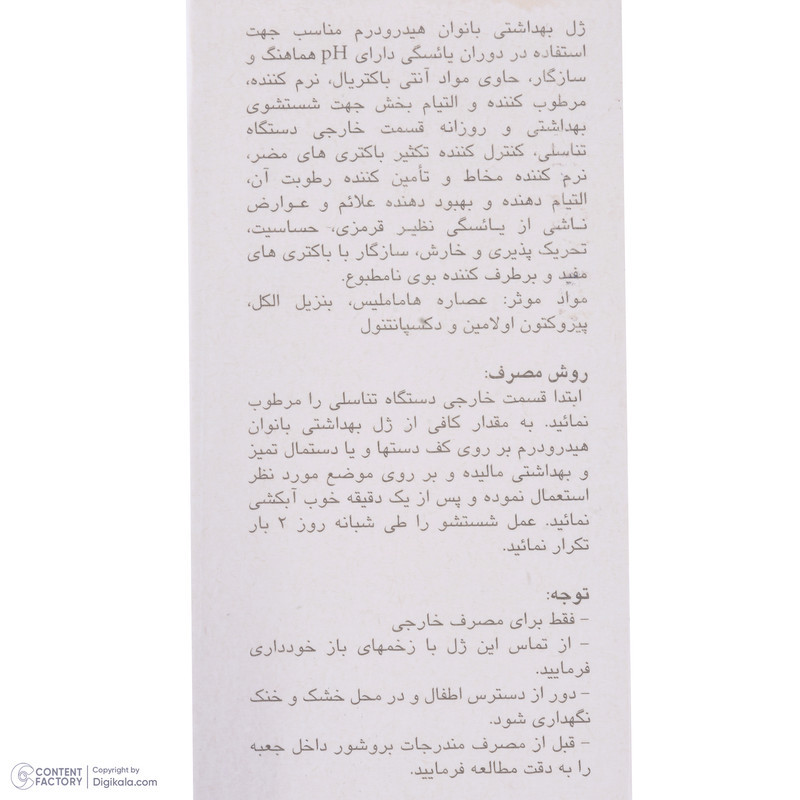 ژل بهداشتی بانوان هیدرودرم مناسب جهت
استفاده در دوران یائسگی دارای pH هماهنگ و
سازگار، حاوی مواد آنتی باکتریال، نرم کننده،
مرطوب کننده و التیام بخش جهت شستشوی
بهداشتی و روزانه قسمت خارجی دستگاه
تناسلی. کنترل کننده تکثیر باکتری های مضر،
نرم کننده مخاط و تأمین کننده رطوبت آن،
التیام دهنده و بهبود دهنده علائم و عوارض
ناشی از یائسگی نظیر قرمزی، حساسیت،
تحریک پذیری و خارش، سازگار با باکتری های
مفید و برطرف کننده بوی نامطبوع.
مواد موثر: عصاره هاماملیس، بنزیل الکل،
پیروکتون اولامین و دکسپانتنول
روش مصرف:
ابتدا قسمت خارجی دستگاه تناسلی را مرطوب
نمائید. به مقدار کافی از ژل بهداشتی بانوان
هیدرودرم بر روی کف دستها و یا دستمال تمیز
و بهداشتی مالیده و بر روی موضع مورد نظر
استعمال نموده و پس از یک دقیقه خوب آبکشی
نمائید. عمل شستشو را طی شبانه روز ۲ بار
تکرار نمائید.
توجه:
- فقط برای مصرف خارجی
- از تماس این ژل با زخمهای باز خودداری
فرمایید.
- دور از دسترس اطفال و در محل خشک و خنک
نگهداری شود.
- قبل از مصرف مندرجات بروشور داخل جعبه
را به دقت مطالعه فرمایید.
CONTENT FACTORY
Copyright by
Digikala.com